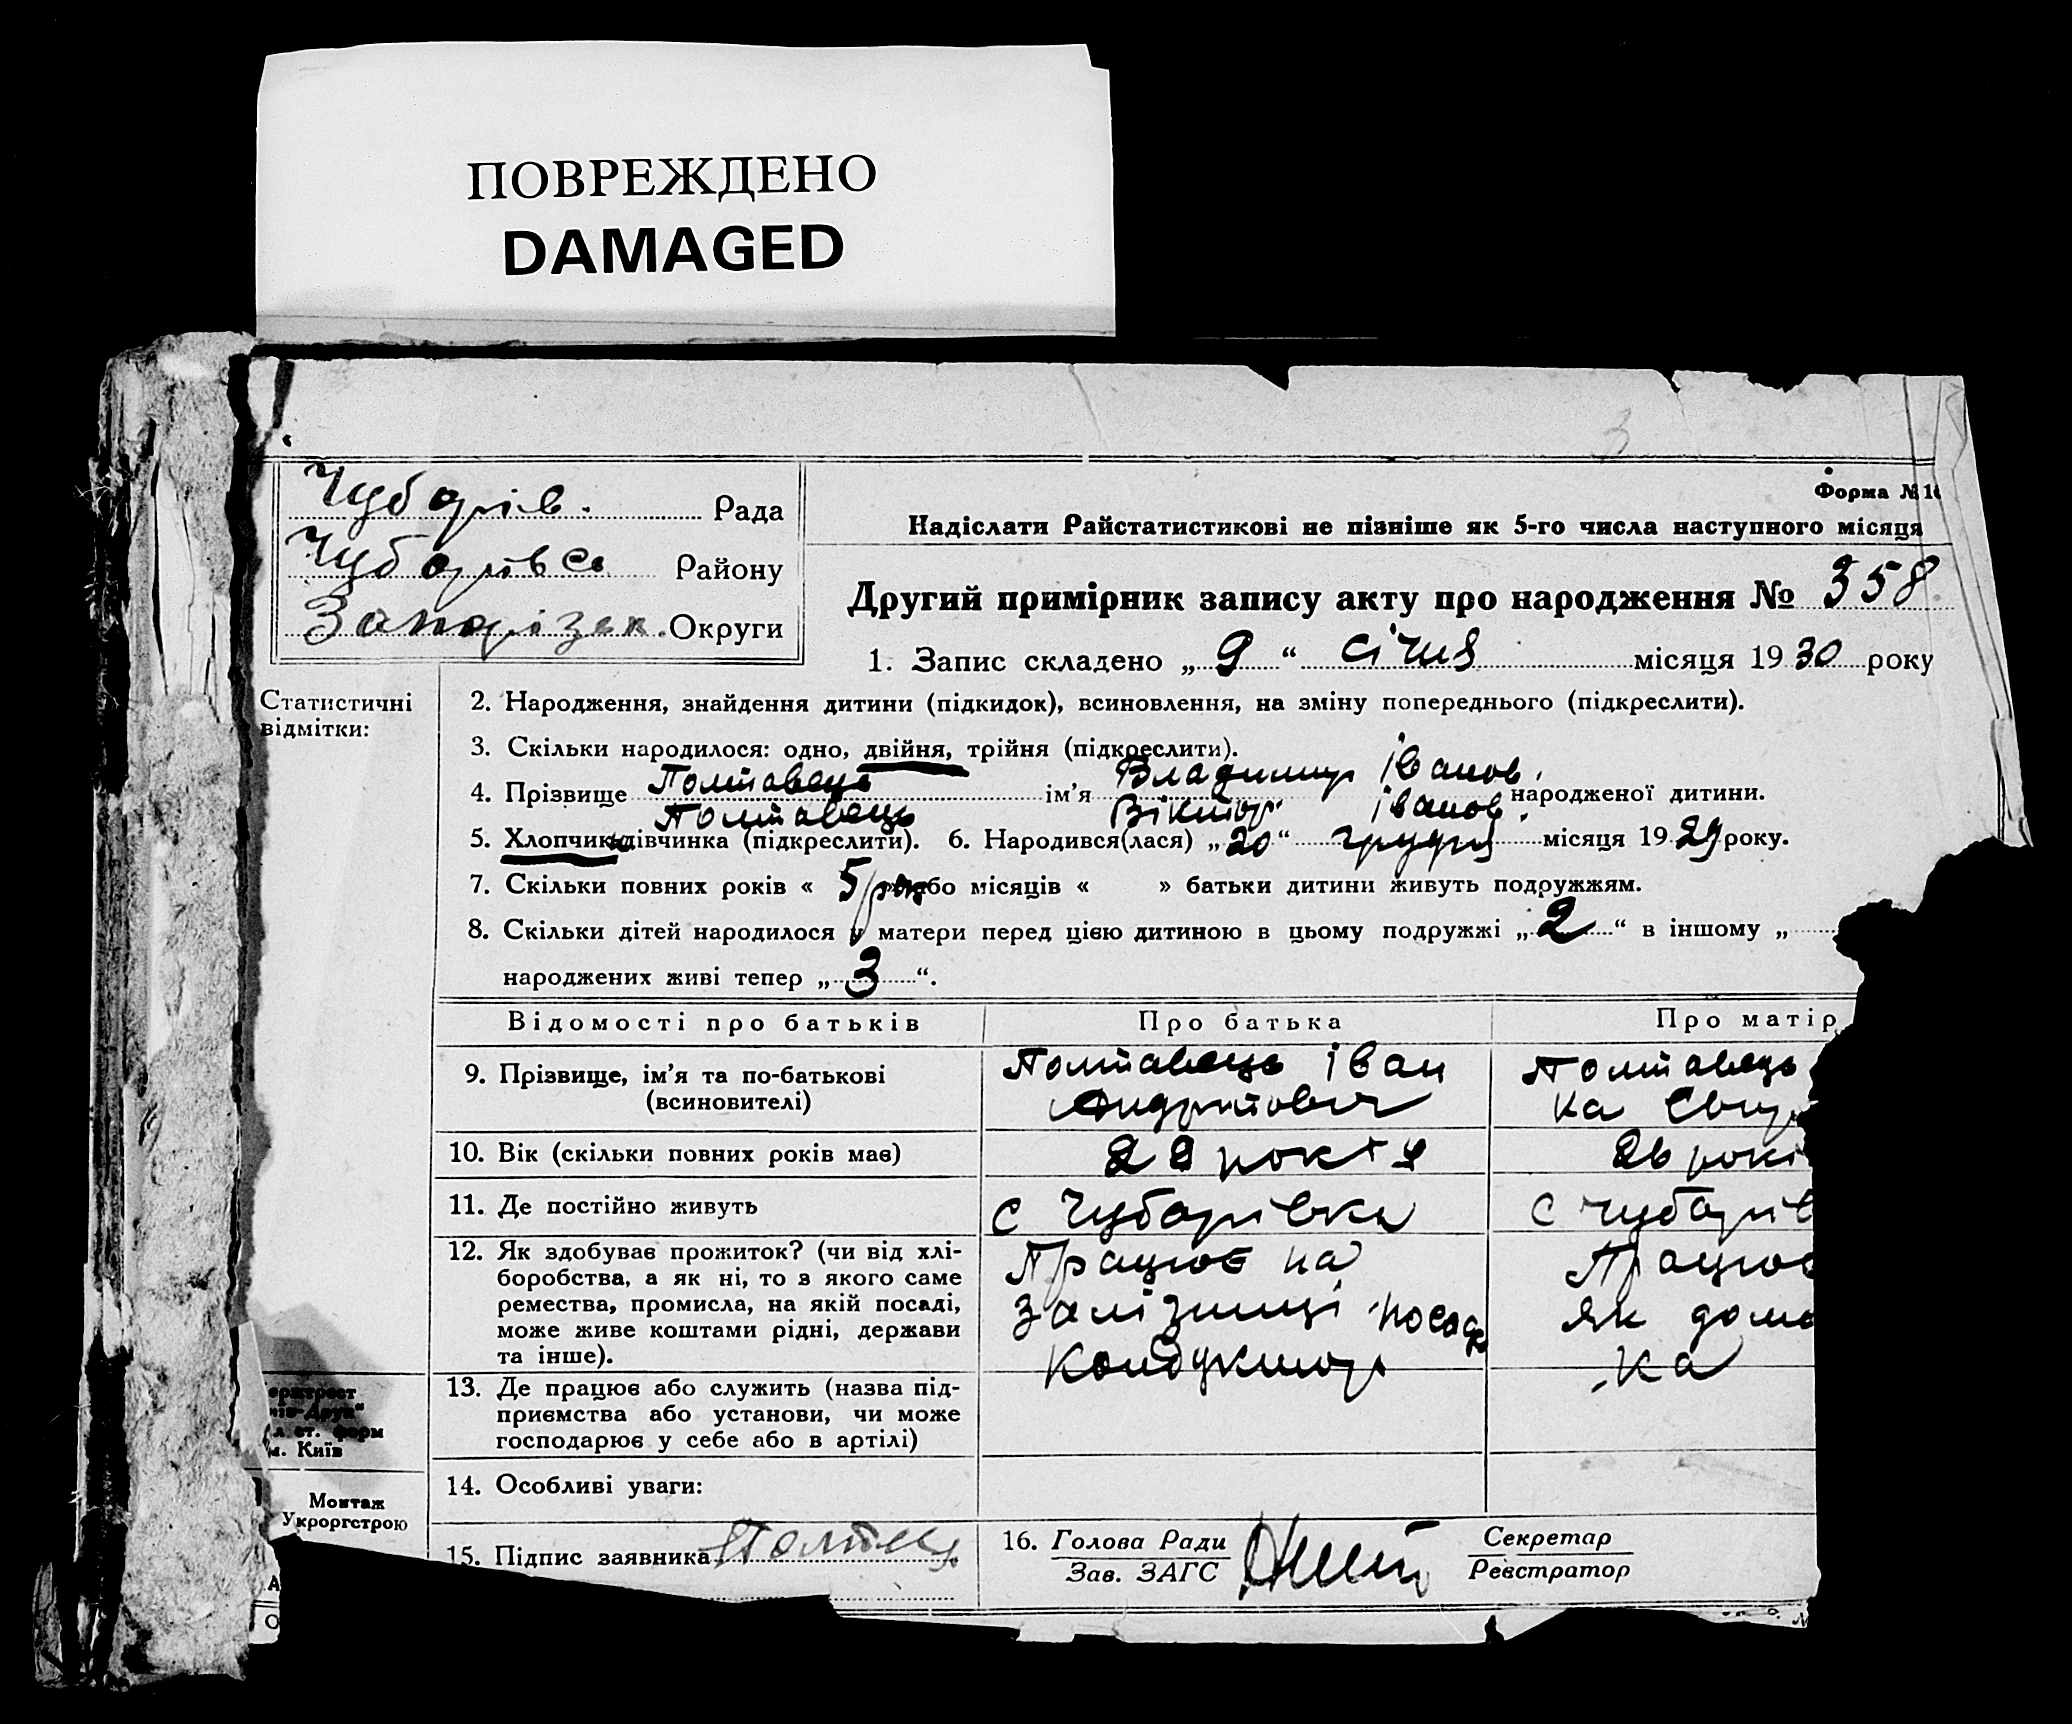 ПОВРЕЖДЕНО
DAMAGED
Чубарів. Рада
Чубарівсь Району
Запорізьк. Округи
Форма № 1
Надіслати Райстатистикові не пізніше як 5-го числа наступного місяця
Другий примірник запису акту про народження № 358
1. Запис складено „ 9 “ січня місяця 1930 року
Статистичні
відмітки:
2. Народження, знайдення дитини (підкидок), всиновлення, на зміну попереднього (підкреслити).
3. Скільки народилося: одно, двійня, трійня (підкреслити).
Полтавець Владимир Іванов.
4. Прізвище ім’я народженої дитини.
Полтавець Віктор Іванов.
5. Хлопчик, дівчинка (підкреслити). 6. Народився(лася) „ 20 “ грудня місяця 1929 року.
7. Скільки повних років « 5 або місяців « » батьки дитини живуть подружжям.
8. Скільки дітей народилося у матери перед цією дитиною в цьому подружжі „ 2 “ в іншому „
народжених живі тепер „ 3 “.
Відомості про батьків Про батька Про матір
9. Прізвище, ім’я та по-батькові
(всиновителі)
Полтавець Іван
Андрійович
Полтавець
ка
10. Вік (скільки повних років має) 22 років 26 рокі
11. Де постійно живуть с Чубарівка с Чубарів
12. Як здобуває прожиток? (чи від хлі-
боробства, а як ні, то з якого саме
ремества, промисла, на якій посаді,
може живе коштами рідні, держави
та інше).
Працює на
залізниці посада
Кондуктор
Працює
як домо
ка
13. Де працює або служить (назва під-
приємства або установи, чи може
господарює у себе або в артілі)
14. Особливі уваги:
м. Київ
Монтаж
Укроргстрою
15. Підпис заявника
16. Голова Ради
Зав. ЗАГС
Секретар
Реєстратор